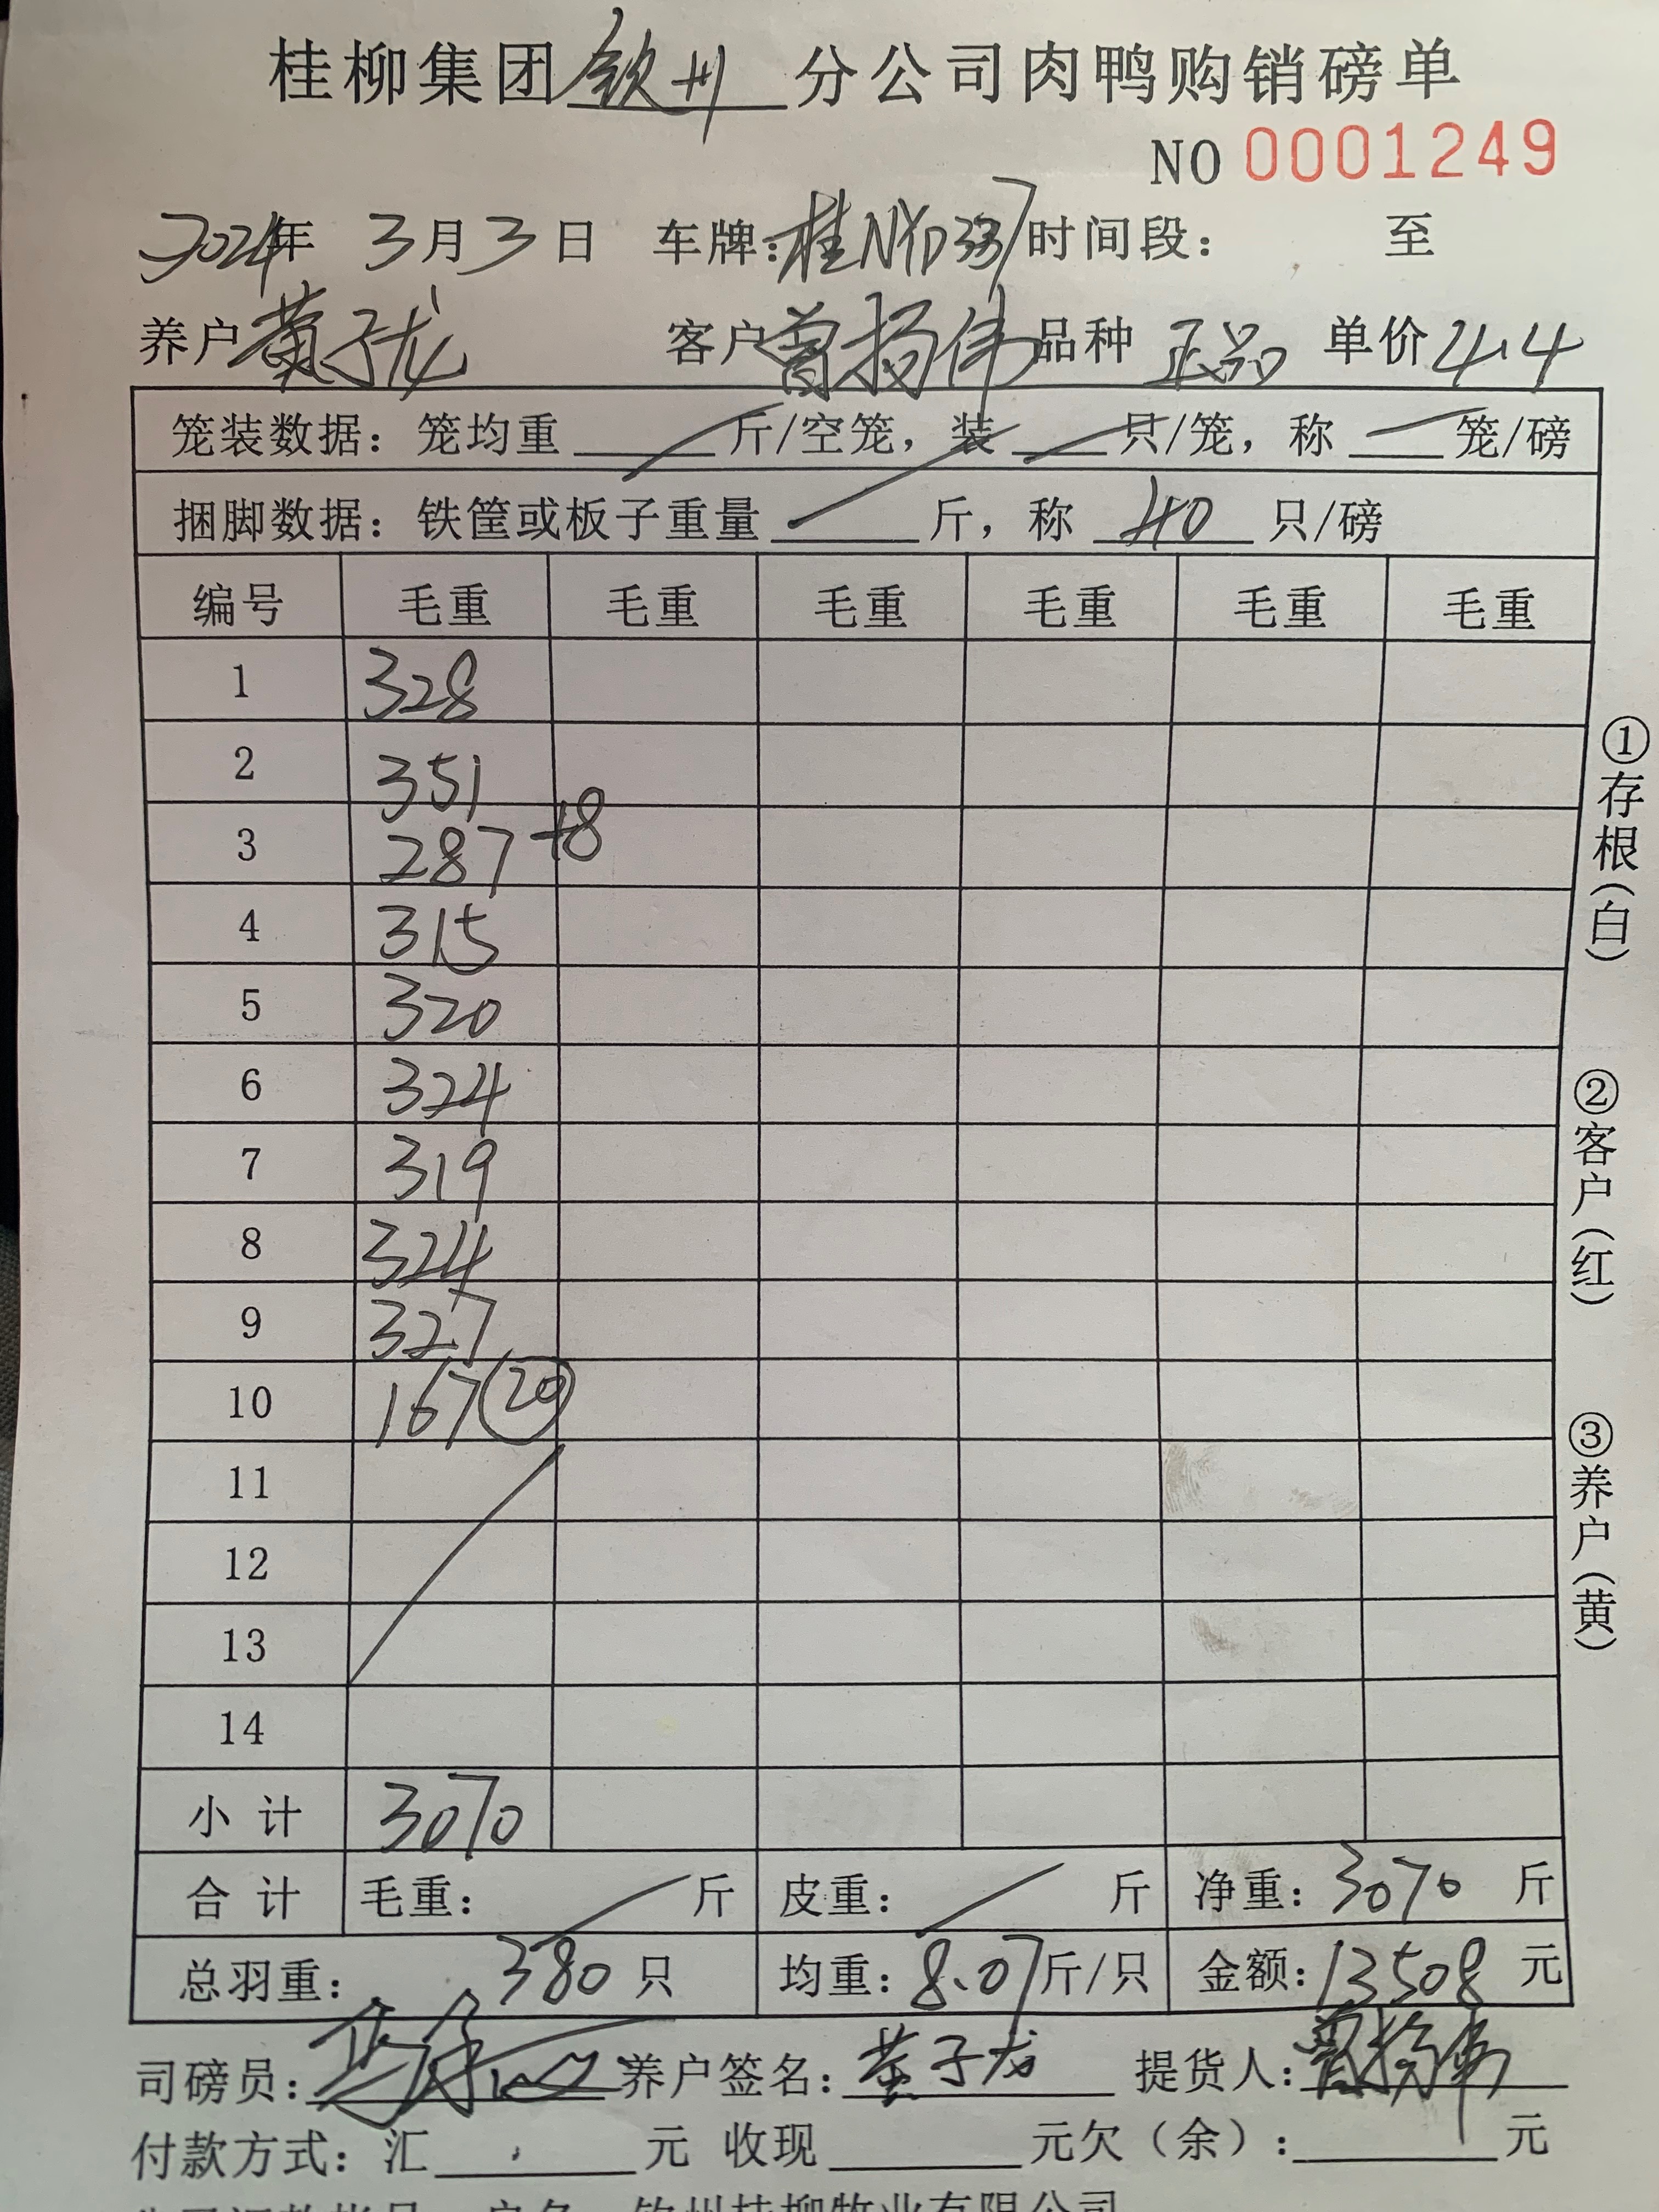 桂柳集团钦州分公司肉鸭购销磅单
NO 0001249
2024年 3月3日 车牌:桂NYD337 时间段: 至
养户 黄子龙 客户 曾扬伟 品种 正品 单价 4.4
笼装数据:笼均重 斤/空笼,装 只/笼,称 笼/磅
捆脚数据:铁筐或板子重量 斤,称 40 只/磅
编号 毛重 毛重 毛重 毛重 毛重 毛重
1 328
2 351
3 287 +8
4 315
5 320
6 324
7 319
8 324
9 327
10 167 (20)
11
12
13
14
小计 3070
合计 毛重: 斤 皮重: 斤 净重:3070 斤
总羽重:380 只 均重:8.07 斤/只 金额:13508 元
司磅员: 养户签名:黄子龙 提货人:曾扬伟
付款方式:汇 元 收现 元欠(余): 元
钦州桂柳牧业有限公司
①存根(白)
②客户(红)
③养户(黄)